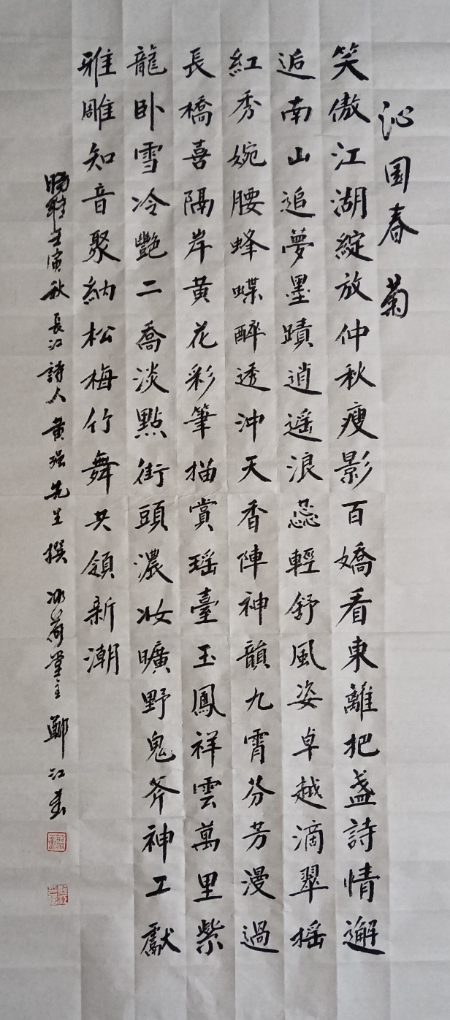 沁园春 菊
笑傲江湖綻放仲秋瘦影百嬌看東離把盞詩情邂
逅南山追夢墨蹟逍遥浪蕊輕舒風姿卓越滴翠摇
紅秀婉腰蜂蝶醉透沖天香陣神韻九霄芬芳漫過
長橋喜隔岸黄花彩筆描賞瑶臺玉鳳祥雲萬里紫
龍卧雪冷艷二喬淡點街頭濃妆曠野鬼斧神工獻
雅雕知音聚納松梅竹舞共領新潮
壬寅秋長江詩人黄强先生撰 堂主鄭江書